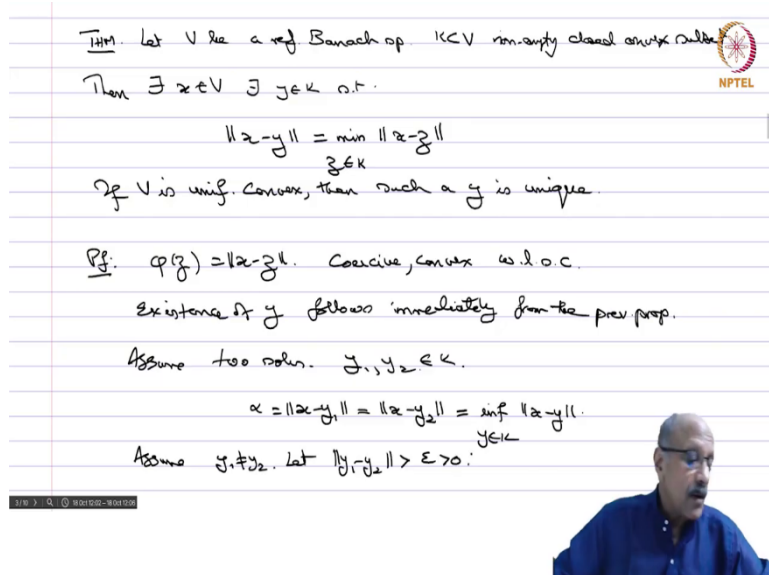 THM. Let V be a ref. Banach sp. K⊂V non-empty closed convex subset
NPTEL
Then ∃ x∈V ∃ y∈K s.t.
‖x-y‖ = min ‖x-z‖
z∈K
If V is unif. convex, then such a y is unique.
Pf: φ(z) = ‖x-z‖. Coercive, convex w.l.s.c.
Existence of y follows immediately from the prev. prop.
Assume two solns. y₁, y₂ ∈ K.
α = ‖x-y₁‖ = ‖x-y₂‖ = inf ‖x-y‖.
y∈K
Assume y₁≠y₂. Let ‖y₁-y₂‖ > ε >0.